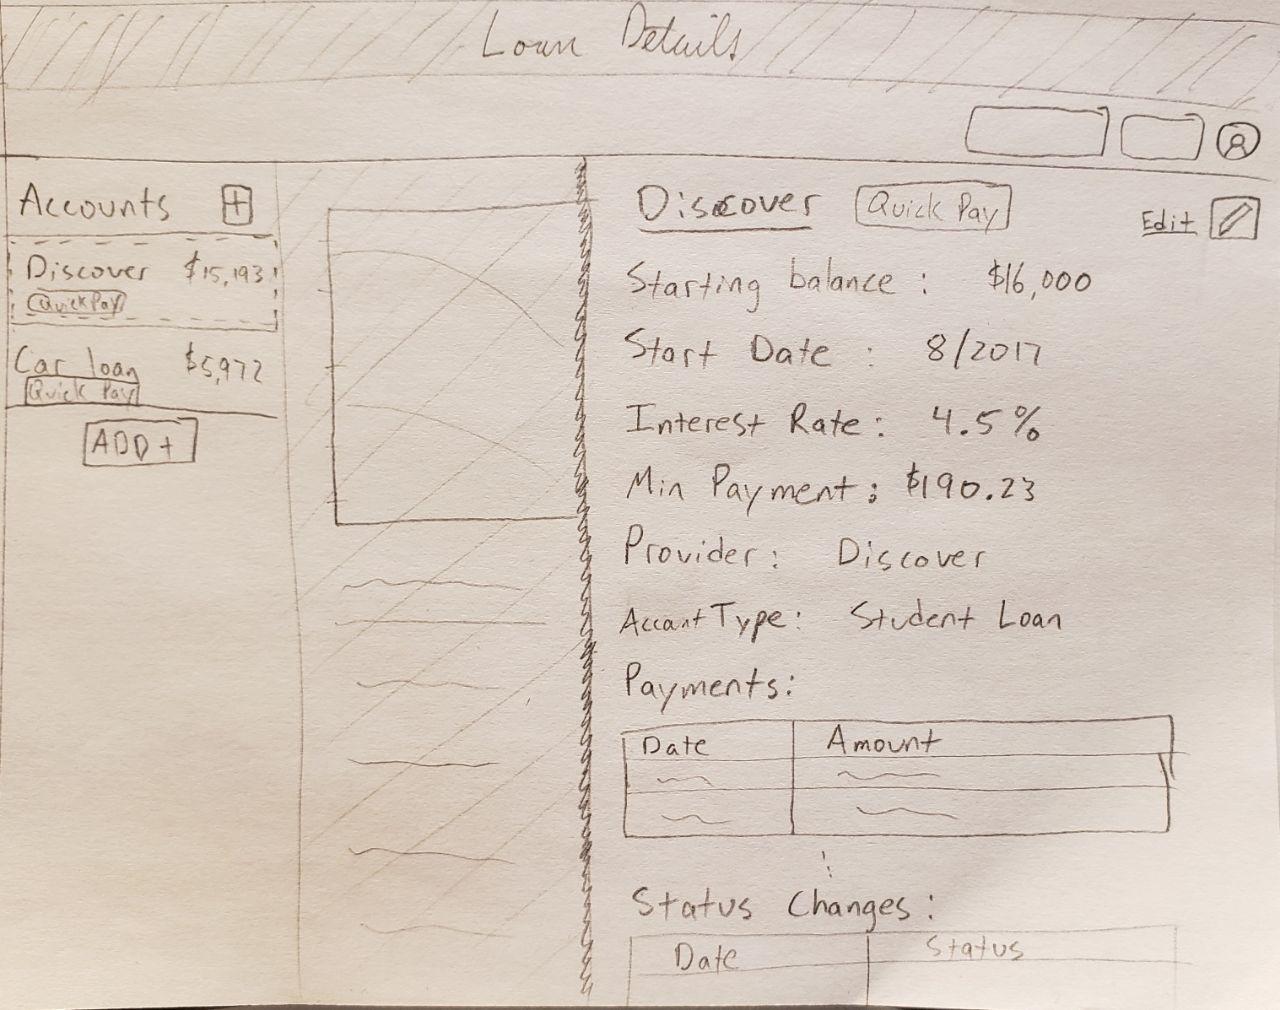 Loan Details
Accounts +
Discover $15,193
Quick Pay
Car loan $5,972
Quick Pay
ADD +
Discover Quick Pay Edit
Starting balance : $16,000
Start Date : 8/2017
Interest Rate : 4.5%
Min Payment : $190.23
Provider : Discover
Account Type : Student Loan
Payments :
Date Amount
Status Changes :
Date Status